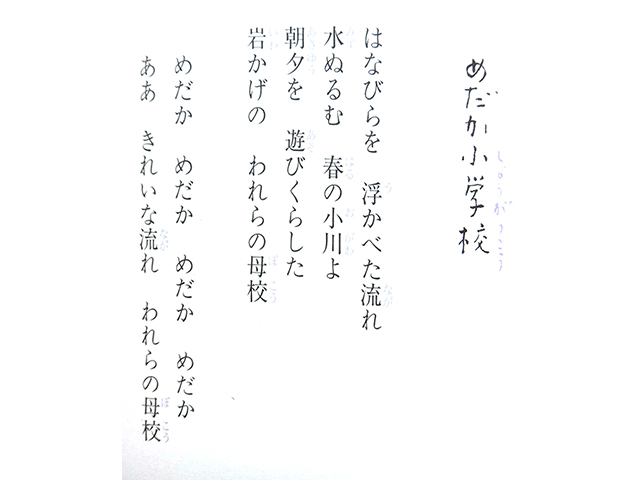 めだか小学校
はなびらを　浮かべた流れ
水ぬるむ　春の小川よ
朝夕を　遊びくらした
岩かげの　われらの母校
めだか　めだか　めだか　めだか
ああ　きれいな流れ　われらの母校